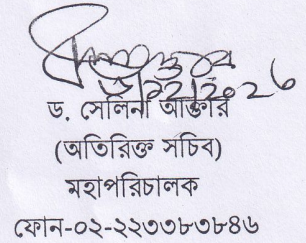 ড. সেলিনা আক্তার
(অতিরিক্ত সচিব)
মহাপরিচালক
ফোন-০২-২২৩৩৮৩৮৪৬